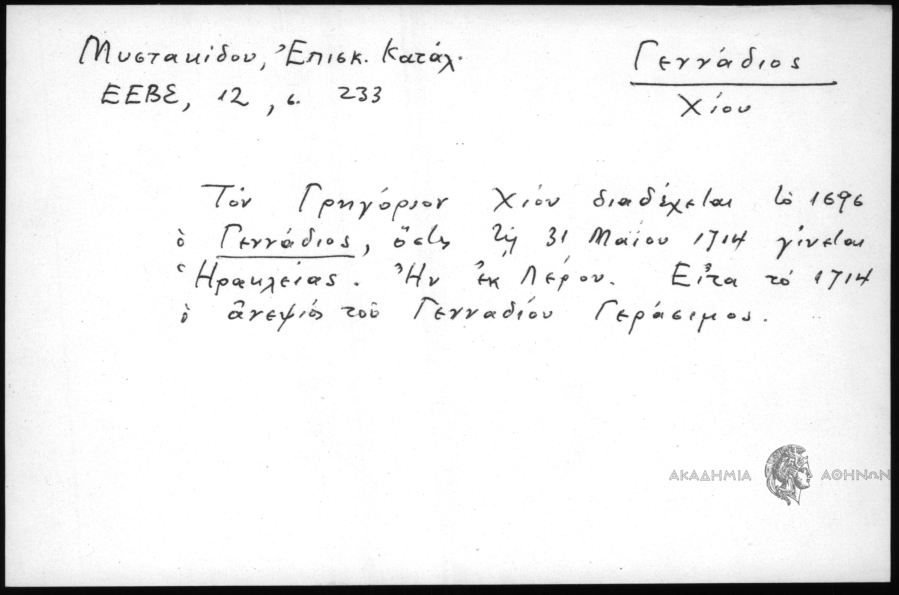 Μυστακίδου, Ἐπισκ. Κατάλ.
ΕΕΒΣ, 12, σ. 233
Γεννάδιος
Χίου
Τὸν Γρηγόριον Χίου διαδέχεται τὸ 1696
ὁ Γεννάδιος, ὅστις τῇ 31 Μαΐου 1714 γίνεται
Ἡρακλείας. Ἦν ἐκ Λέρου. Εἶτα τὸ 1714
ὁ ἀνεψιὸς τοῦ Γενναδίου Γεράσιμος.
ΑΚΑΔΗΜΙΑ ΑΘΗΝΩΝ